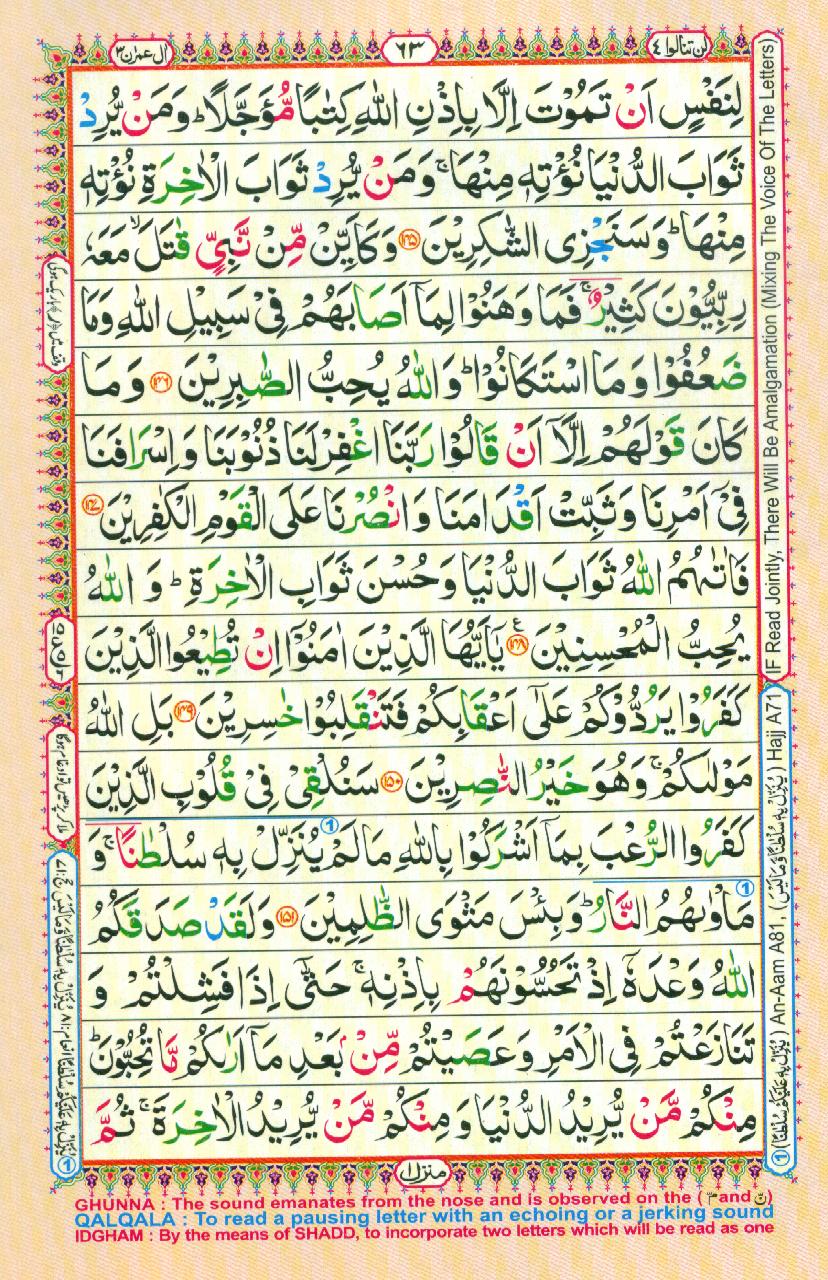 لن تنالوا ٤
٦٣
اٰل عمرٰن ٣
لِنَفْسٍ اَنْ تَمُوْتَ اِلَّا بِاِذْنِ اللّٰهِ كِتٰبًا مُّؤَجَّلًا ؕ وَمَنْ يُّرِدْ
ثَوَابَ الدُّنْيَا نُؤْتِهٖ مِنْهَا ۚ وَمَنْ يُّرِدْ ثَوَابَ الْاٰخِرَةِ نُؤْتِهٖ
مِنْهَا ؕ وَسَنَجْزِى الشّٰكِرِيْنَ ﴿۱۴۵﴾ وَكَاَيِّنْ مِّنْ نَّبِىٍّ قٰتَلَ ۙ مَعَهٗ
رِبِّيُّوْنَ كَثِيْرٌ ۚ فَمَا وَهَنُوْا لِمَاۤ اَصَابَهُمْ فِىْ سَبِيْلِ اللّٰهِ وَمَا
ضَعُفُوْا وَمَا اسْتَكَانُوْا ؕ وَاللّٰهُ يُحِبُّ الصّٰبِرِيْنَ ﴿۱۴۶﴾ وَمَا
كَانَ قَوْلَهُمْ اِلَّاۤ اَنْ قَالُوْا رَبَّنَا اغْفِرْلَنَا ذُنُوْبَنَا وَاِسْرَافَنَا
فِىْۤ اَمْرِنَا وَثَبِّتْ اَقْدَامَنَا وَانْصُرْنَا عَلَى الْقَوْمِ الْكٰفِرِيْنَ ﴿۱۴۷﴾
فَاٰتٰىهُمُ اللّٰهُ ثَوَابَ الدُّنْيَا وَحُسْنَ ثَوَابِ الْاٰخِرَةِ ؕ وَاللّٰهُ
يُحِبُّ الْمُحْسِنِيْنَ ﴿۱۴۸﴾ يٰۤاَيُّهَا الَّذِيْنَ اٰمَنُوْۤا اِنْ تُطِيْعُوا الَّذِيْنَ
كَفَرُوْا يَرُدُّوْكُمْ عَلٰٓى اَعْقَابِكُمْ فَتَنْقَلِبُوْا خٰسِرِيْنَ ﴿۱۴۹﴾ بَلِ اللّٰهُ
مَوْلٰٮكُمْ ۚ وَهُوَ خَيْرُ النّٰصِرِيْنَ ﴿۱۵۰﴾ سَنُلْقِىْ فِىْ قُلُوْبِ الَّذِيْنَ
كَفَرُوا الرُّعْبَ بِمَاۤ اَشْرَكُوْا بِاللّٰهِ مَا لَمْ يُنَزِّلْ بِهٖ سُلْطٰنًا ۚ وَ
مَاْوٰٮهُمُ النَّارُ ؕ وَبِئْسَ مَثْوَى الظّٰلِمِيْنَ ﴿۱۵۱﴾ وَلَقَدْ صَدَقَكُمُ
اللّٰهُ وَعْدَهٗۤ اِذْ تَحُسُّوْنَهُمْ بِاِذْنِهٖ ۚ حَتّٰٓى اِذَا فَشِلْتُمْ وَ
تَنَازَعْتُمْ فِى الْاَمْرِ وَعَصَيْتُمْ مِّنْۢ بَعْدِ مَاۤ اَرٰٮكُمْ مَّا تُحِبُّوْنَ ؕ
مِنْكُمْ مَّنْ يُّرِيْدُ الدُّنْيَا وَمِنْكُمْ مَّنْ يُّرِيْدُ الْاٰخِرَةَ ۚ ثُمَّ
منزل ١
IF Read Jointly, There Will Be Amalgamation (Mixing The Voice Of The Letters)
① (يُنَزِّلْ بِهٖ عَلَيْكُمْ سُلْطٰنًا) An-Aam A81, (يُنَزِّلْ بِهٖ سُلْطٰنًا وَّمَا لَيْسَ) Hajj A71
GHUNNA : The sound emanates from the nose and is observed on the (مّ and نّ)
QALQALA : To read a pausing letter with an echoing or a jerking sound
IDGHAM : By the means of SHADD, to incorporate two letters which will be read as one